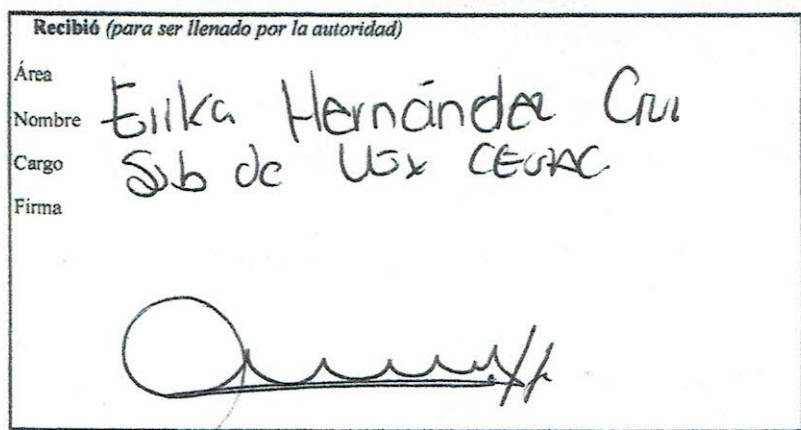 Recibió (para ser llenado por la autoridad)
Área
Nombre Erika Hernández Cruz
Cargo Sub de
Firma